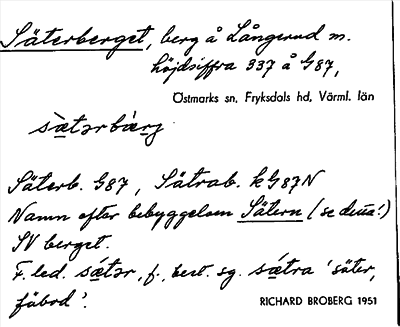 Säterberget, berg å Långerud m.
höjdsiffra 337 å G87,
Östmarks sn, Fryksdals hd, Värml. län
sæ̀tərbæ̀rj
Säterb. G87, Sätrab. kG87N
Namn efter bebyggelsen Sätern (se denna!)
SV berget.
F. led. sǽtər, f., best. sg. sǽtra 'säter,
fäbod'.
RICHARD BROBERG 1951